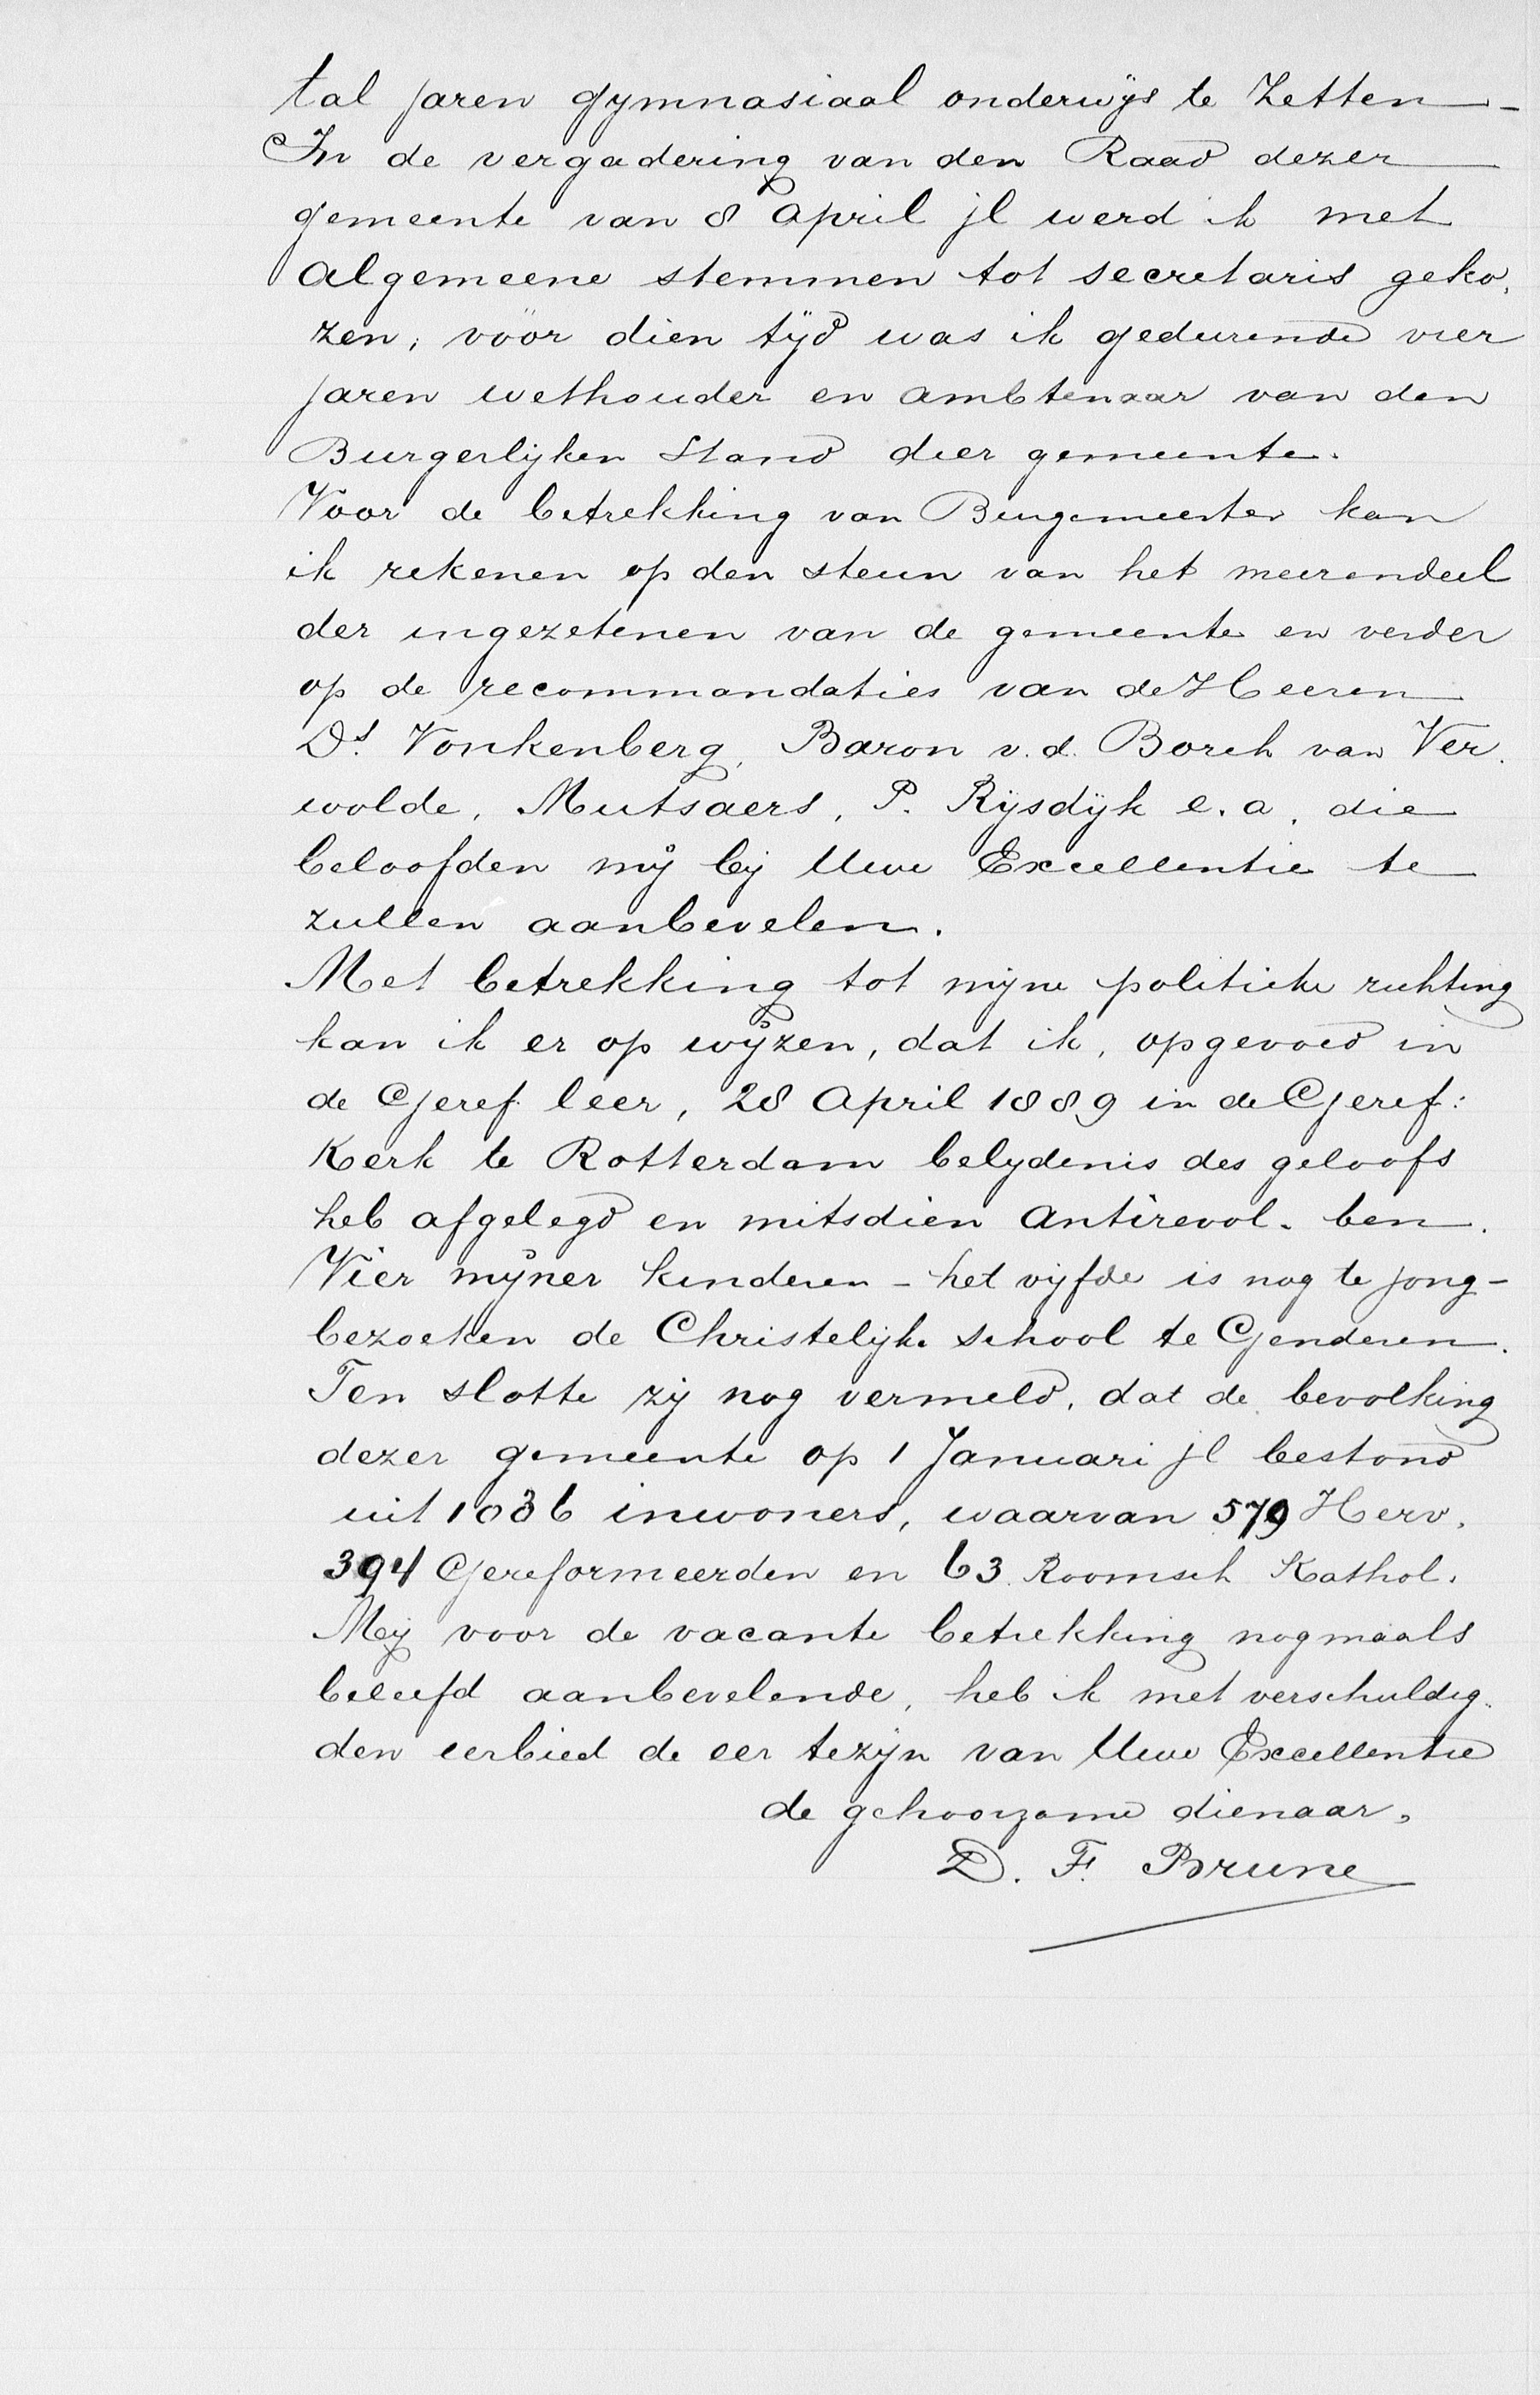 tal jaren gymnasiaal onderwijs te Zetten –
In de vergadering van den Raad dezer
gemeente van 8 April jl werd ik met
algemeene stemmen tot secretaris geko-
zen; vóór dien tijd was ik gedurende vier
jaren wethouder en ambtenaar van den
Burgerlijken Stand dier gemeente.
Voor de betrekking van Burgemeester kan
ik rekenen op den steun van het meerendeel
der ingezetenen van de gemeente en verder
op de recommandaties van de Heeren
Ds. Vonkenberg, Baron v.d. Borch van Ver-
wolde, Mutsaers, P. Rijsdijk e.a. die
beloofden mij bij Uwe Excellentie te
zullen aanbevelen.
Met betrekking tot mijne politieke richting
kan ik er op wijzen, dat ik, opgevoed in
de Geref. leer, 28 April 1889 in de Geref:
Kerk te Rotterdam belijdenis des geloofs
heb afgelegd en mitsdien antirevol. ben.
Vier mijner kinderen – het vijfde is nog te jong –
bezoeken de Christelijke school te Genderen.
Ten slotte zij nog vermeld, dat de bevolking
dezer gemeente op 1 Januari jl bestond
uit 1036 inwoners, waarvan 579 Herv.
394 Gereformeerden en 63 Roomsch Kathol.
Mij voor de vacante betrekking nogmaals
beleefd aanbevelende, heb ik met verschuldig-
den eerbied de eer te zijn van Uwe Excellentie
de gehoorzame dienaar,
D. F. Brune